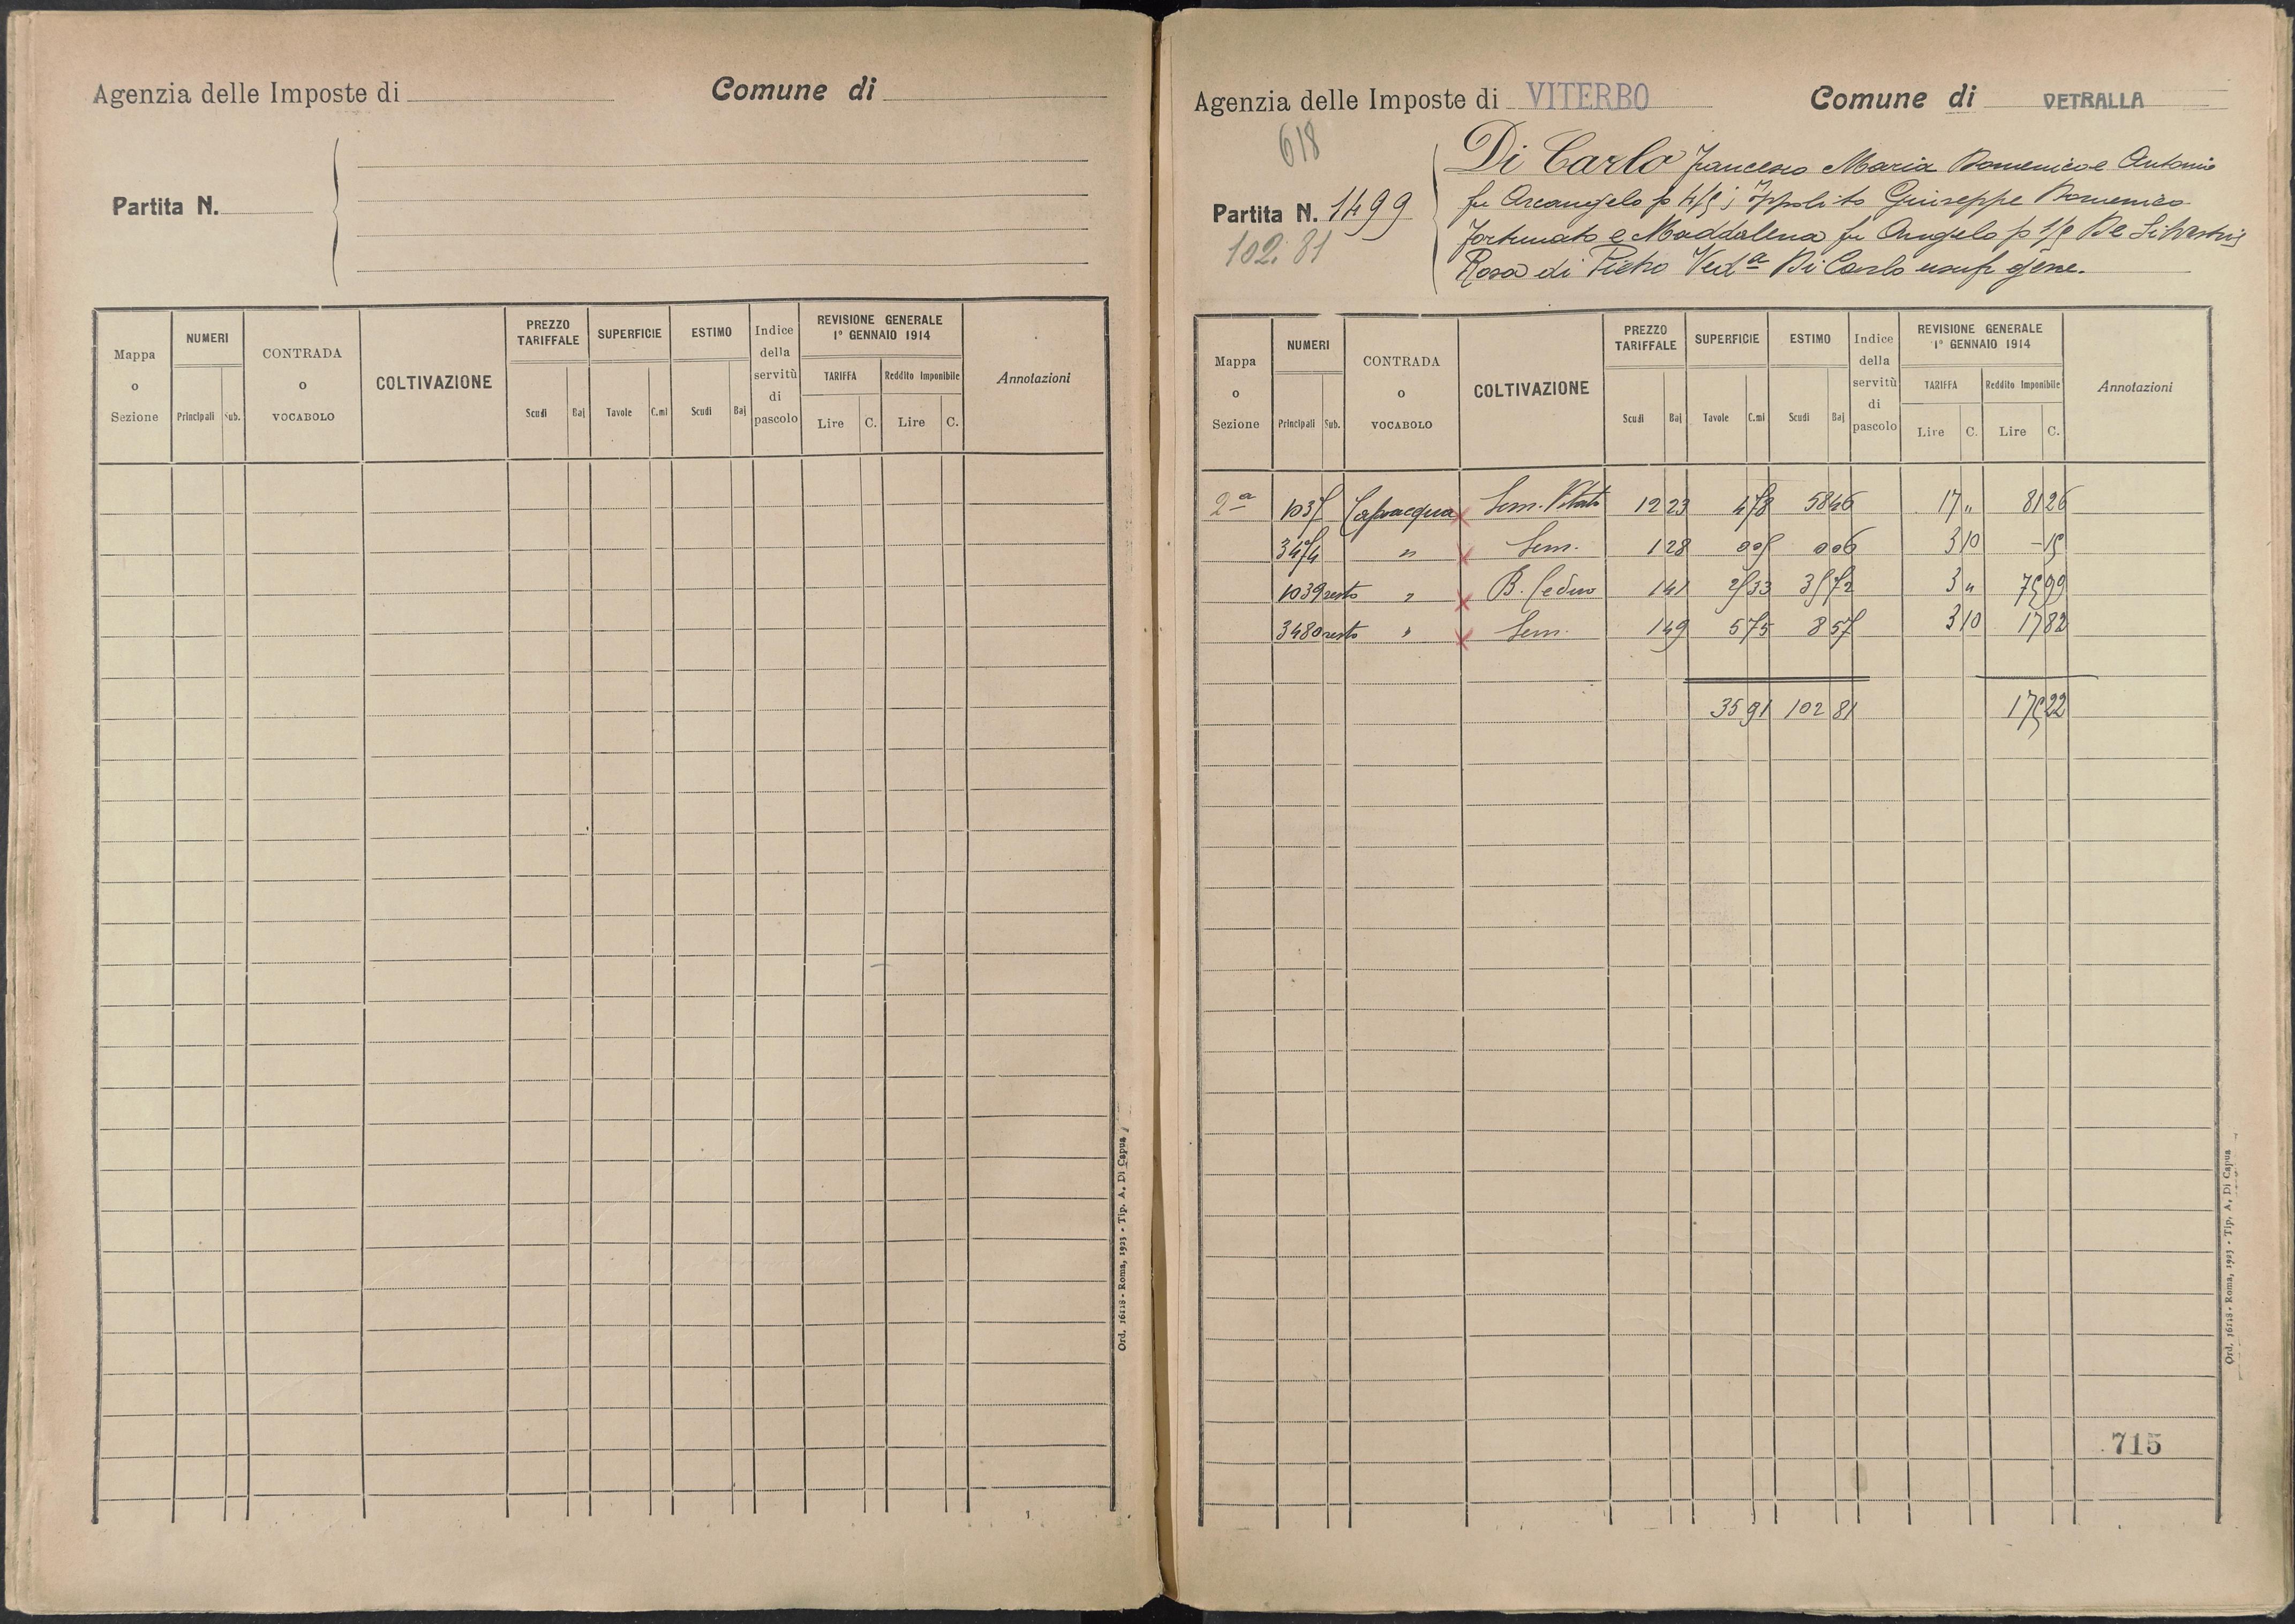 Agenzia delle Imposte di
Comune di
Partita N.
Mappa o Sezione
NUMERI
Principali Sub.
CONTRADA o VOCABOLO
COLTIVAZIONE
PREZZO TARIFFALE
Scudi Baj
SUPERFICIE
Tavole C.mi
ESTIMO
Scudi Baj
Indice della servitù di pascolo
REVISIONE GENERALE
1° GENNAIO 1914
TARIFFA
Lire C.
Reddito Imponibile
Lire C.
Annotazioni
Ord. 16118 - Roma, 1923 - Tip. A. Di Capua
Agenzia delle Imposte di VITERBO
Comune di VETRALLA
618
Partita N. 1499
102.81
Di Carlo Francesco Maria Domenico e Antonio
fu Arcangelo p 4/5; Ippolito Giuseppe Domenico
Fortunato e Maddalena fu Angelo p 1/5 De
Rosa di Pietro Ved.a Di Carlo usuf gene.
Mappa o Sezione
NUMERI
Principali Sub.
CONTRADA o VOCABOLO
COLTIVAZIONE
PREZZO TARIFFALE
Scudi Baj
SUPERFICIE
Tavole C.mi
ESTIMO
Scudi Baj
Indice della servitù di pascolo
REVISIONE GENERALE
1° GENNAIO 1914
TARIFFA
Lire C.
Reddito Imponibile
Lire C.
Annotazioni
2a 1037 Capracqua Sem. Vitato 12 23 4 78 58 46 17 " 81 26
3474 " Sem. 1 28 0 05 0 06 3 10 - 15
1039 resto " B. Ceduo 1 41 25 33 35 72 3 " 75 99
3480 resto " Sem. 1 49 5 75 8 57 3 10 17 82
35 91 102 81 175 22
715
Ord. 16118 - Roma, 1923 - Tip. A. Di Capua